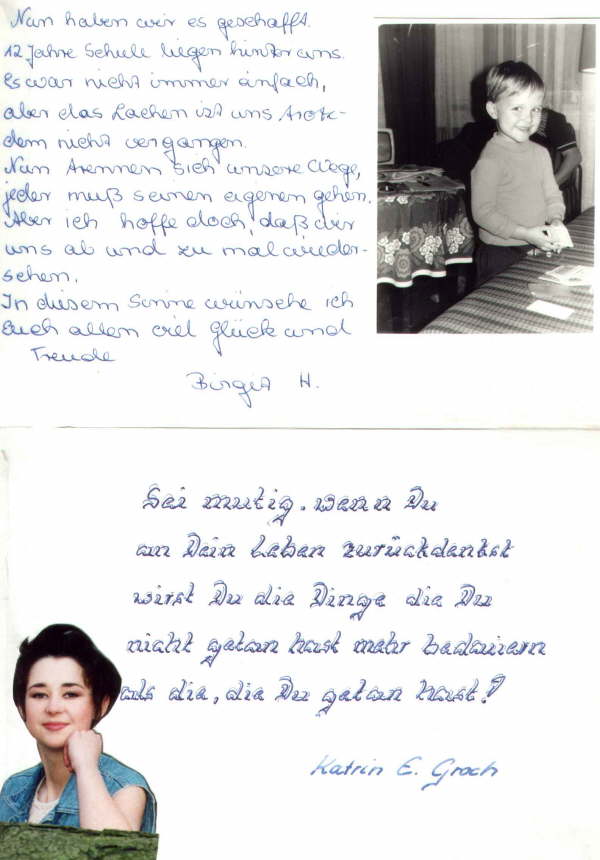 Nun haben wir es geschafft.
12 Jahre Schule liegen hinter uns.
Es war nicht immer einfach,
aber das Lachen ist uns trotz-
dem nicht vergangen.
Nun trennen sich unsere Wege,
jeder muß seinen eigenen gehen.
Aber ich hoffe doch, daß wir
uns ab und zu mal wieder-
sehen.
In diesem Sinne wünsche ich
Euch allen viel Glück und
Freude
Birgit H.
Sei mutig. wenn Du
an Dein Leben zurückdenkst
wirst Du die Dinge die Du
nicht getan hast mehr bedauern
als die, die Du getan hast!
Katrin E. Groch